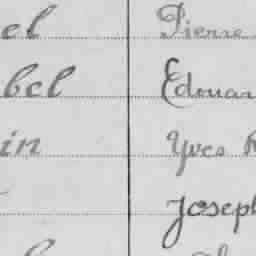 el Pierre
bel Edouar
in Yves
Joseph